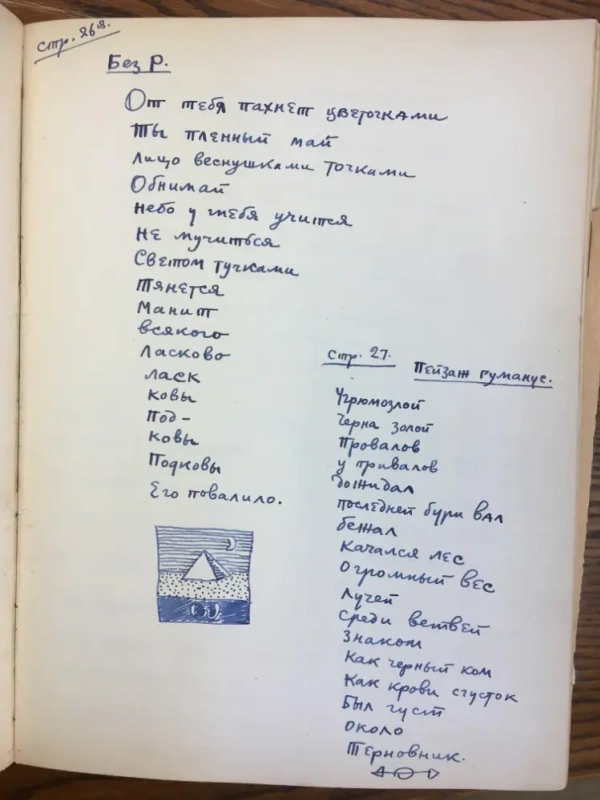 Стр. 26
Без Р.
От тебя пахнет цветочками
Ты пленный май
Лицо веснушками точками
Обнимай
Небо у тебя учится
Не мучиться
Светом тучками
Тянется
Манит
всякого
Ласково
ласк
ковы
Под-
ковы
Подковы
Его повалило.
Стр. 27.
Пейзаж гуманус.
Угрюмозлой
Черна золой
Провалов
у привалов
Дожидал
последней бури вал
бежал
Качался лес
Огромный вес
Лучей
Среди ветвей
Знаком
Как черный ком
Как крови сгусток
Был густ
около
Терновник.